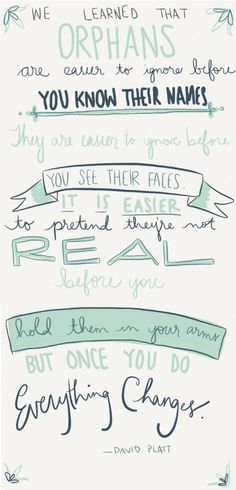 WE LEARNED THAT
ORPHANS
are easier to ignore before
YOU KNOW THEIR NAMES.
They are easier to ignore before
YOU SEE THEIR FACES.
IT IS EASIER
to pretend they're not
REAL
before you
hold them in your arms
BUT ONCE YOU DO
Everything Changes.
—DAVID PLATT